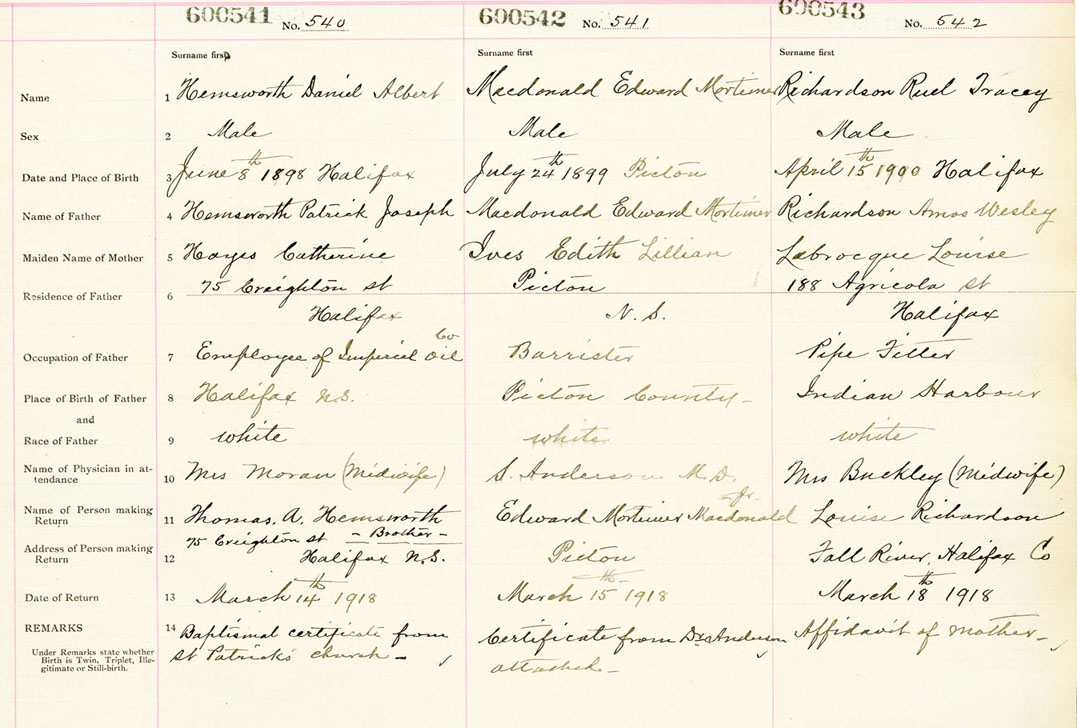 600541 No. 540 600542 No. 541 600543 No. 542
Surname first Surname first Surname first
Name 1 Hemsworth Daniel Albert Macdonald Edward Mortimer Richardson Ruel Tracey
Sex 2 Male Male Male
Date and Place of Birth 3 June 8th 1898 Halifax July 24th 1899 Picton April 15th 1900 Halifax
Name of Father 4 Hemsworth Patrick Joseph Macdonald Edward Mortimer Richardson Amos Wesley
Maiden Name of Mother 5 Hayes Catherine Ives Edith Lillian Labrocque Louise
Residence of Father 6 75 Creighton st Picton 188 Agricola st
Halifax N. S. Halifax
Occupation of Father 7 Employee of Imperial Oil Co Barrister Pipe Fitter
Place of Birth of Father 8 Halifax N.S. Picton County - Indian Harbour
and
Race of Father 9 white white white
Name of Physician in at- 10 Mrs Moran (Midwife) S. Anderson M.D. Mrs Buckley (Midwife)
tendance
Name of Person making 11 Thomas. A. Hemsworth Edward Mortimer Macdonald Jr. Louise Richardson
Return
75 Creighton st - Brother -
Address of Person making 12 Halifax N.S. Picton Fall River, Halifax Co
Return
Date of Return 13 March 14th 1918 March 15th 1918 March 18th 1918
REMARKS 14 Baptismal certificate from Certificate from Dr Anderson Affidavit of Mother -
Under Remarks state whether St Patrick's church - attached -
Birth is Twin, Triplet, Ille-
gitimate or Still-birth.